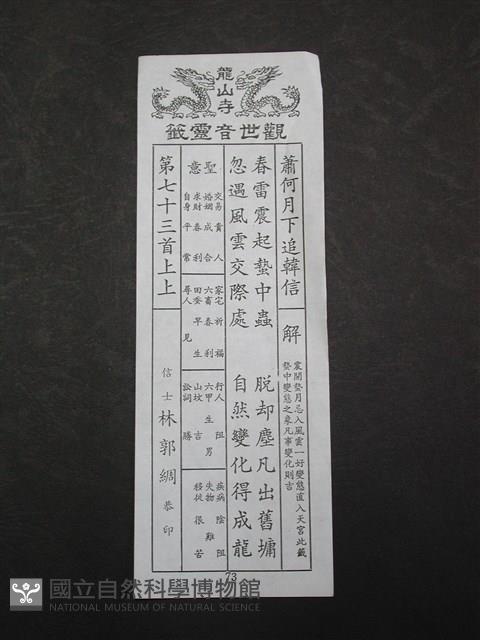 龍山寺
觀世音靈籤
蕭何月下追韓信
解
震開蟄月忌入風雲一好變態直入天宮此籤
蟄中變態之象凡事變化則吉
春雷震起蟄中蟲
脱却塵凡出舊墉
忽遇風雲交際處
自然變化得成龍
聖意
交易 貴人
婚姻 成合
求財 春利
自身 平常
家宅 祈福
六畜 春利
田蚕 早生
尋人 見
行人 阻
六甲 生男
山坟 吉
訟詞 勝
疾病 陰阻
失物 難
移徙 很苦
第七十三首上上
信士 林郭綢 恭印
73
國立自然科學博物館
NATIONAL MUSEUM OF NATURAL SCIENCE